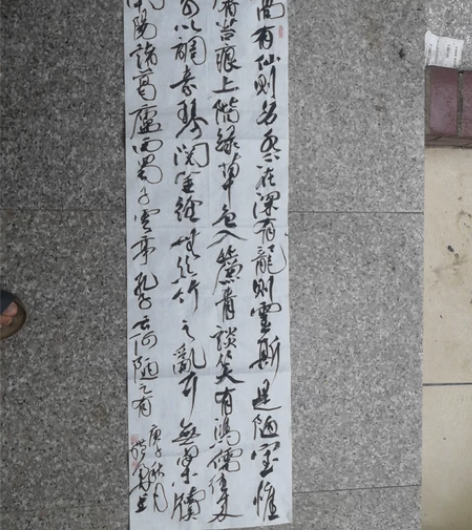 高有仙则名水不在深有龍则靈斯是陋室惟
馨苔痕上階緑草色入簾青談笑有鴻儒往来
可以調素琴閲金經無丝竹之亂耳無案牘
南陽諸葛廬西蜀子雲亭孔子云何陋之有
庚子秋月